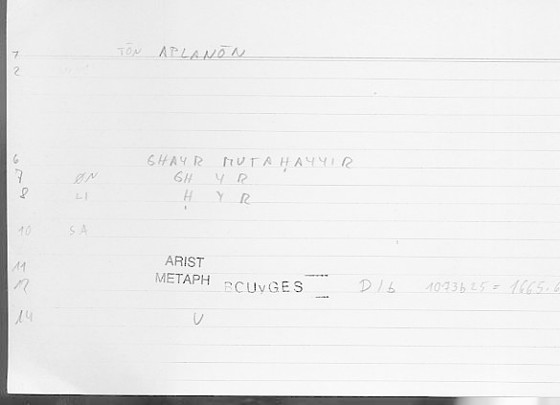 7 TŌN APLANŌN
2
6 GHAYR MUTAḤAYYIR
7 ØN GH Y R
8 LI Ḥ Y R
10 SA
11 ARIST
12 METAPH BOUYGES D/b 1073b25 = 1665.6
14 V